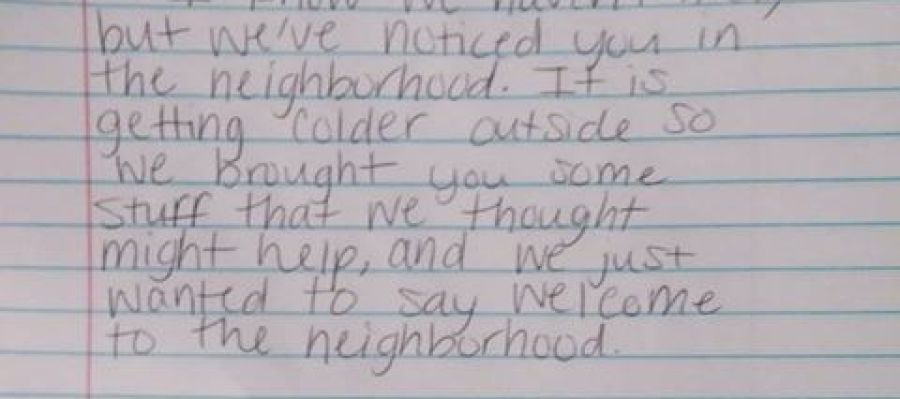 know we haven't
but we've noticed you in
the neighborhood. It is
getting colder outside so
we brought you some
stuff that we thought
might help, and we just
wanted to say welcome
to the neighborhood.